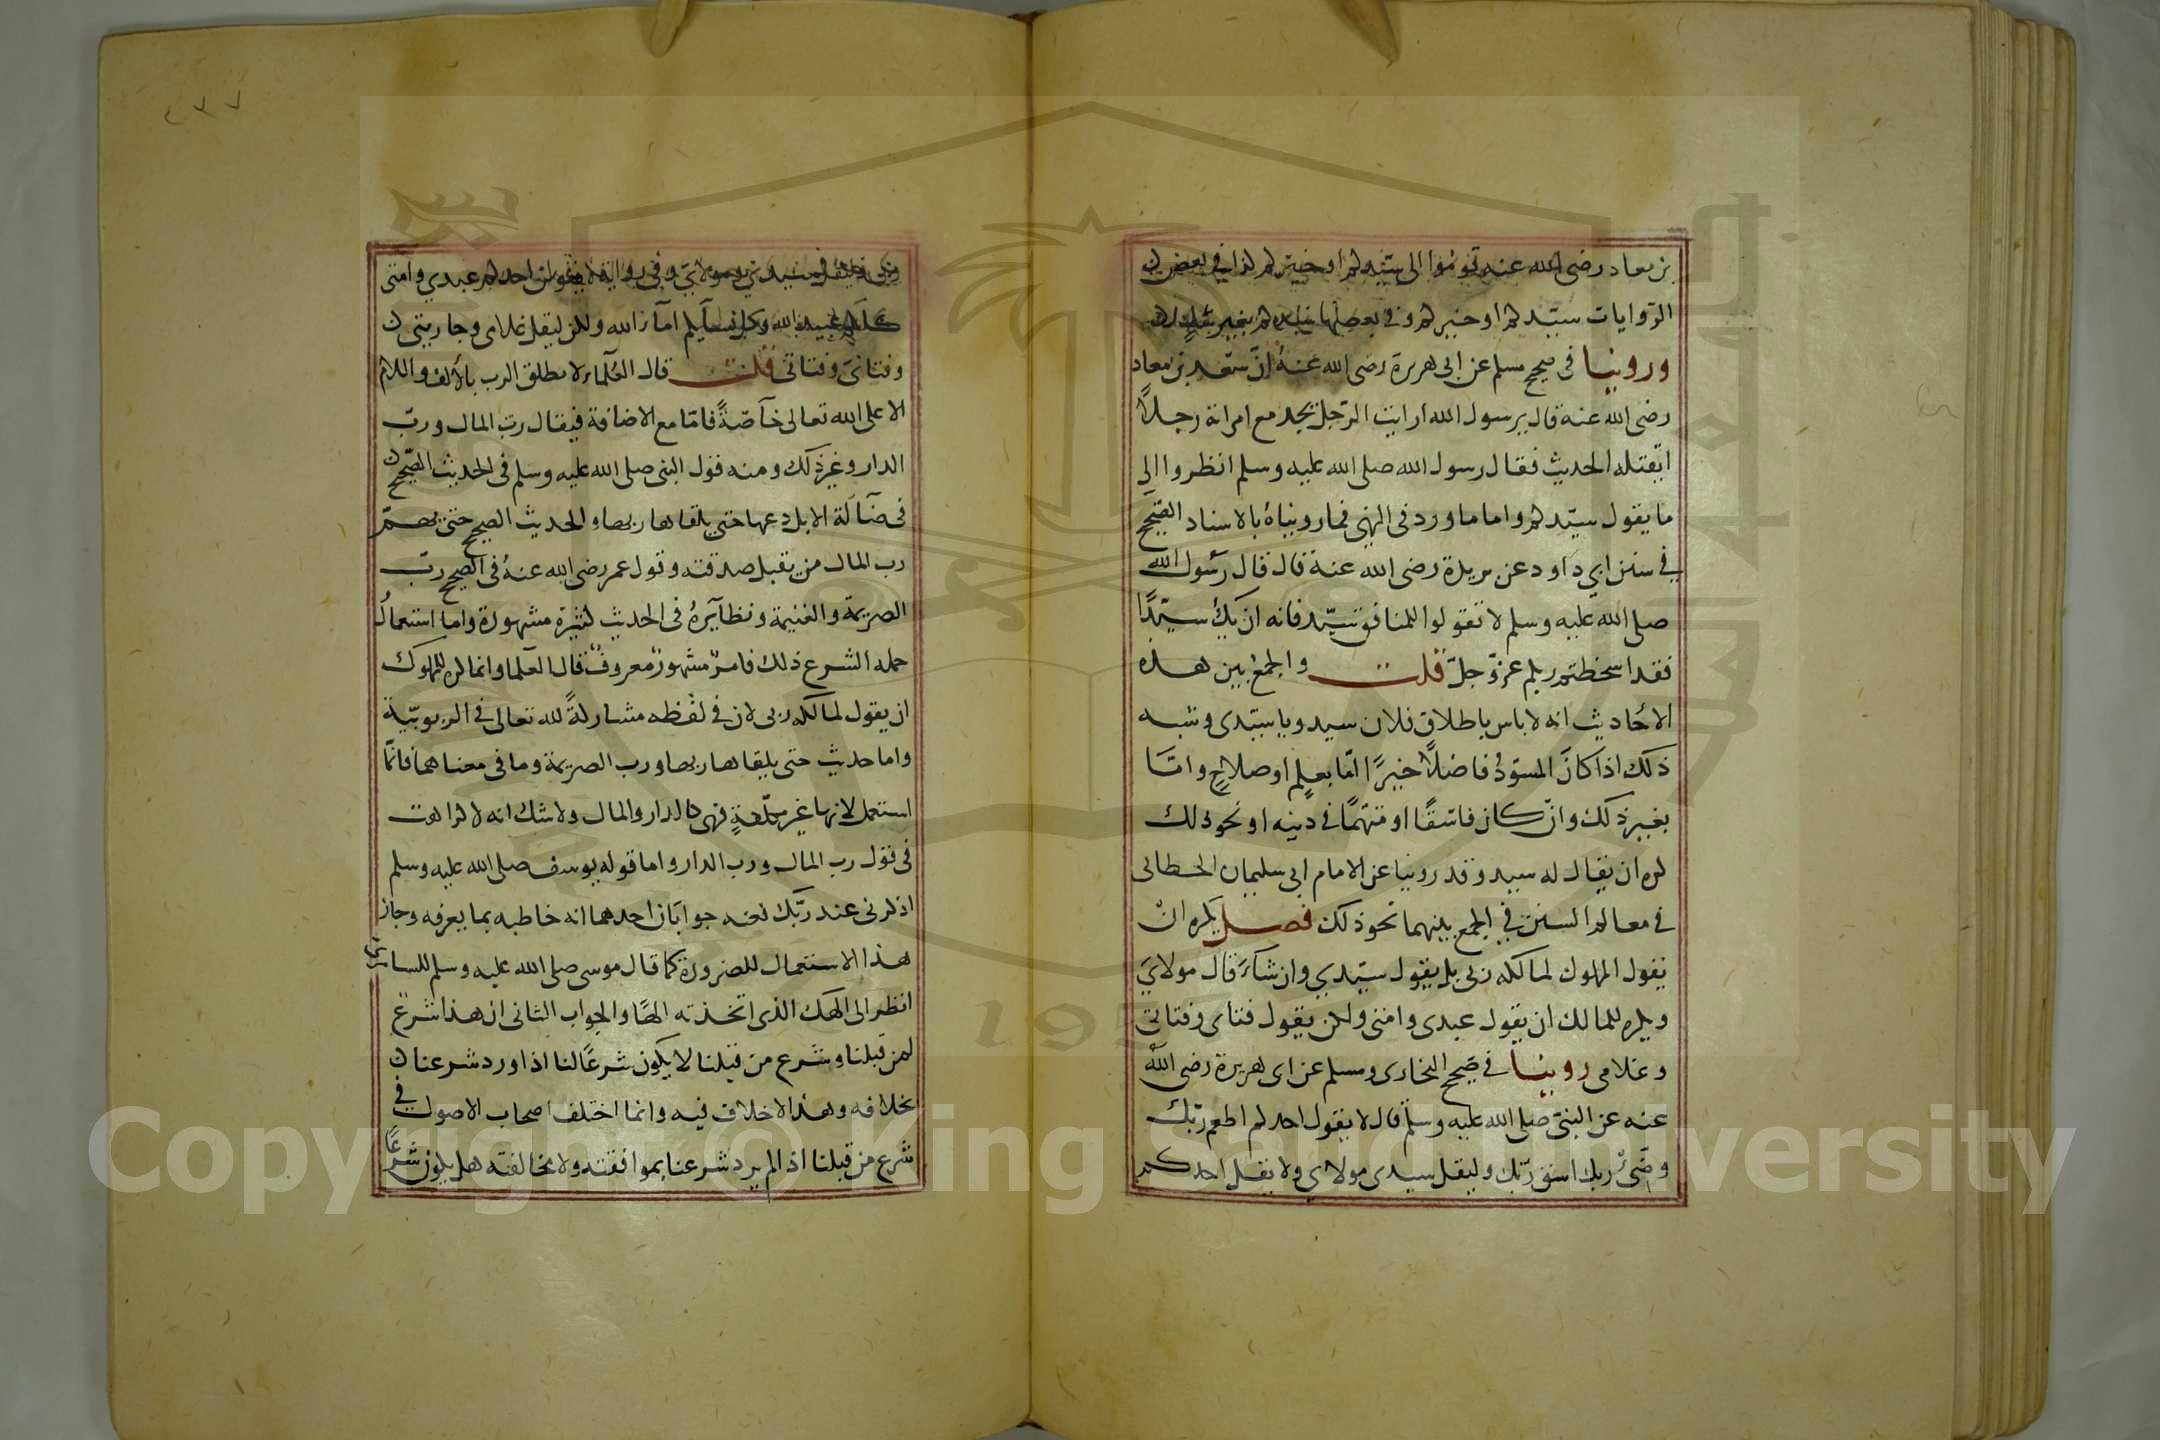 بن معاد رضي الله عنه قوموا الى سيدكم او خيركم كذا في بعض
الروايات سيدكم او خيركم وفي بعضها سيدكم بغير شك
وروينا في صحيح مسلم عن ابى هريرة رضى الله عنه ان سعد بن معاد
رضى الله عنه قال يرسول الله ارايت الرجل يجد مع امراته رجلاً
ايقتله الحديث فقال رسول الله صلى الله عليه وسلم انظروا الى
ما يقول سيدكم واما ما ورد فى النهي فما رويناه بالاسناد الصحيح
في سنن ابي داود عن بريدة رضى الله عنه قال قال رسول الله
صلى الله عليه وسلم لا تقولوا للمنافق سيد فانه ان يك سيدًا
فقد اسخطتم ربكم عز وجل قلت والجمع بين هذه
الاحاديث انه لا باس باطلاق فلان سيد ويا سيدى وشبه
ذلك اذا كان المسود فاضلاً خيرًا اما بعلم او صلاح واما
بغير ذلك وان كان فاسقًا او متهمًا في دينه او نحو ذلك
كره ان يقال له سيد وقد روينا عن الامام ابي سليمان الخطابى
في معالم السنن في الجمع بينهما نحو ذلك فصل يكره ان
يقول المملوك لمالكه ربى بل يقول سيدي وان شاء قال مولاي
ويكره للمالك ان يقول عبدى وامتى ولكن يقول فتاى وفتاتي
وغلامى روينا في صحيح البخارى ومسلم عن ابى هريرة رضى الله
عنه عن النبى صلى الله عليه وسلم قال لا يقول احدكم اطعم ربك
وضئ ربك اسق ربك وليقل سيدى مولاى ولا يقل احدكم
سيدي ومولاي وفي رواية لا يقولن احدكم عبدي وامتى
كلكم عبيد الله وكل نسايكم اماء الله ولكن ليقل غلامى وجاريتى
وفتاى وفتاتى قلت قال العلماء لا يطلق الرب بالألف واللام
الا على الله تعالى خاصةً فاما مع الاضافة فيقال رب المال ورب
الدار وغير ذلك ومنه قول النبى صلى الله عليه وسلم فى الحديث الصحيح
فى ضآلة الابل دعها حتى يلقاها ربها والحديث الصحيح حتى يهم
رب المال من يقبل صدقته وقول عمر رضى الله عنه فى الصحيح رب
الصريمة والغنيمة ونظايره فى الحديث كثيرة مشهورة واما استعمال
حمله الشرع ذلك فامر مشهور معروف قال العلما وانما كره للمملوك
ان يقول لمالكه ربى لان في لفظه مشاركةً لله تعالى في الربوبية
واما حديث حتى يلقاها ربها ورب الصريمة وما فى معناهما فانما
استعمل لانها غير مكلفةٍ فهى كالدار والمال ولا شك انه لا كراهت
فى قول رب المال ورب الدار واما قوله يوسف صلى الله عليه وسلم
اذكرنى عند ربك فعنه جوابان احدهما انه خاطبه بما يعرفه وجاز
هذا الاستعمال للضرورة كما قال موسى صلى الله عليه وسلم للسامرى
انظر الى الهك الذى اتخذته الهًا والجواب الثانى ان هذا شرع
لمن قبلنا وشرع من قبلنا لا يكون شرعًا لنا اذا ورد شرعنا
بخلافه وهذا لا خلاف فيه وانما اختلف اصحاب الاصول في
شرع من قبلنا اذا لم يرد شرعنا بموافقته ولا مخالفته هل يكون شرعًا
Copyright © King Saud University